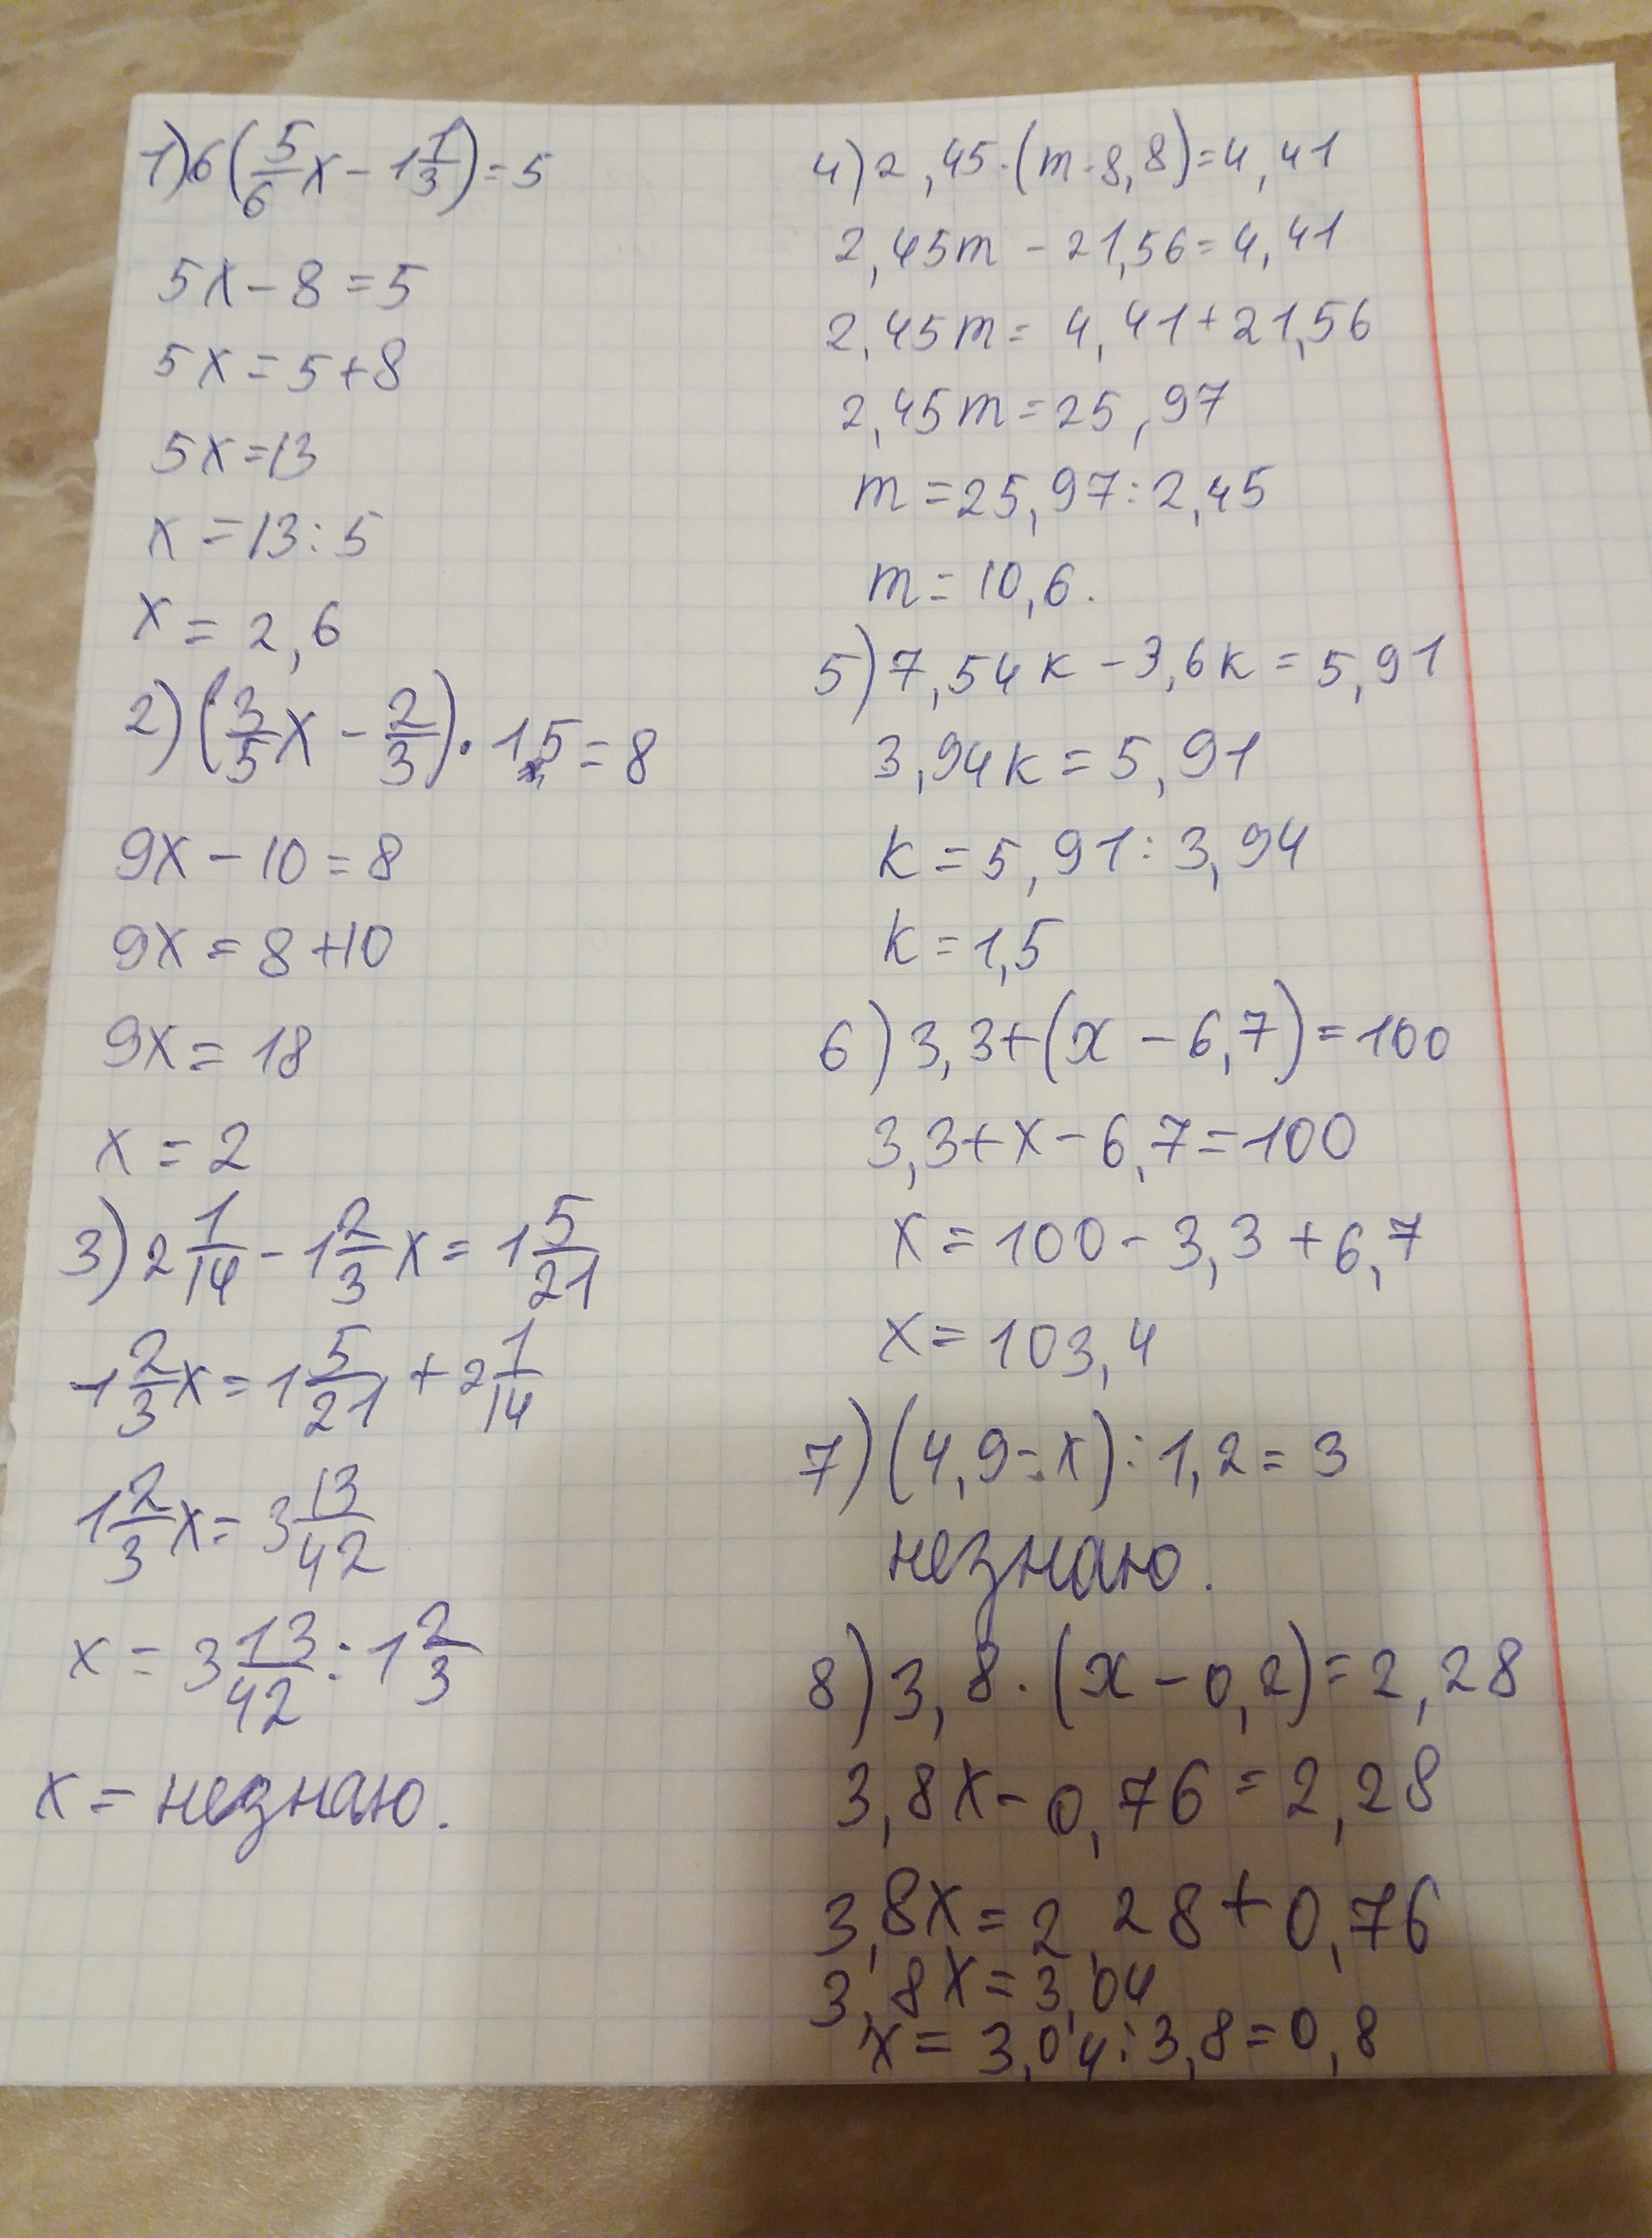 1) 6(5/6 x - 1 1/3) = 5
5x - 8 = 5
5x = 5 + 8
5x = 13
x = 13 : 5
x = 2,6
2) (3/5 x - 2/3) · 15 = 8
9x - 10 = 8
9x = 8 + 10
9x = 18
x = 2
3) 2 1/14 - 1 2/3 x = 1 5/21
-1 2/3 x = 1 5/21 + 2 1/14
1 2/3 x = 3 13/42
x = 3 13/42 : 1 2/3
x = незнаю.
4) 2,45 · (m - 8,8) = 4,41
2,45m - 21,56 = 4,41
2,45m = 4,41 + 21,56
2,45m = 25,97
m = 25,97 : 2,45
m = 10,6.
5) 7,54к - 3,6к = 5,91
3,94к = 5,91
к = 5,91 : 3,94
к = 1,5
6) 3,3 + (x - 6,7) = 100
3,3 + x - 6,7 = 100
x = 100 - 3,3 + 6,7
x = 103,4
7) (4,9 - x) : 1,2 = 3
незнаю.
8) 3,8 · (x - 0,2) = 2,28
3,8x - 0,76 = 2,28
3,8x = 2,28 + 0,76
3,8x = 3,04
x = 3,04 : 3,8 = 0,8